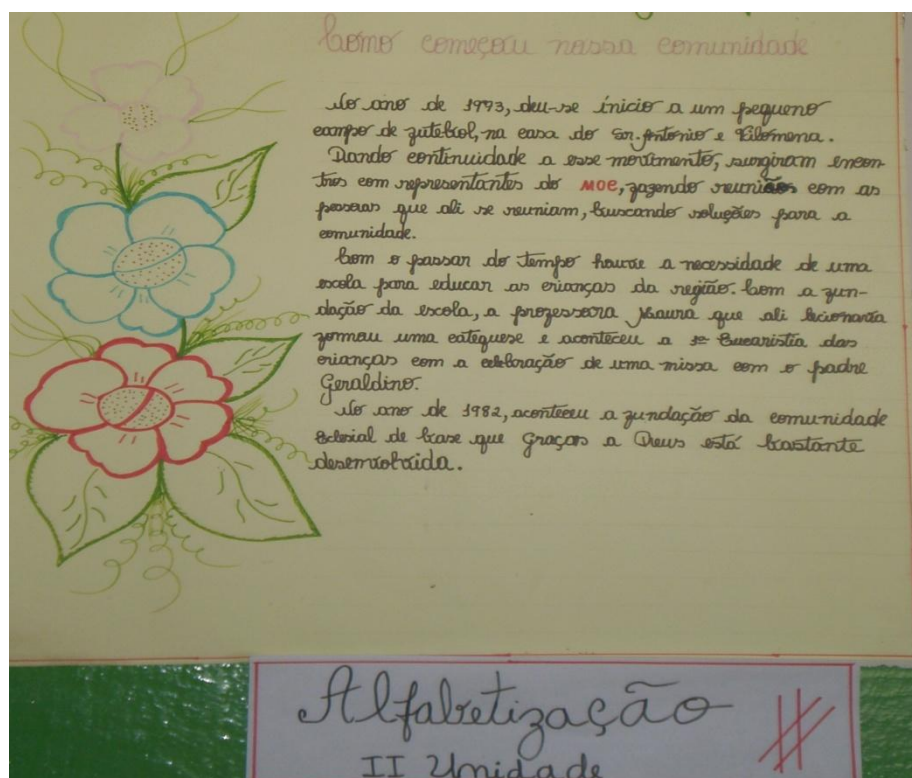 Como começou nossa comunidade
No ano de 1973, deu-se ínicio a um pequeno
campo de futebol, na casa do Sr. Antonio e Filomena.
Dando continuidade a esse movimento, surgiram encon-
tros com representantes do MOE, fazendo reuniões com as
pessoas que ali se reuniam, buscando soluções para a
comunidade.
Com o passar do tempo houve a necessidade de uma
escola para educar as crianças da região. Com a fun-
dação da escola, a professora Maura que ali lecionava
formou uma catequese e aconteceu a 1ª Eucaristia das
crianças com a celebração de uma missa com o padre
Geraldino.
No ano de 1982, aconteceu a fundação da comunidade
Eclesial de base que graças a Deus está bastante
desenvolvida.
Alfabetização
II Unidade